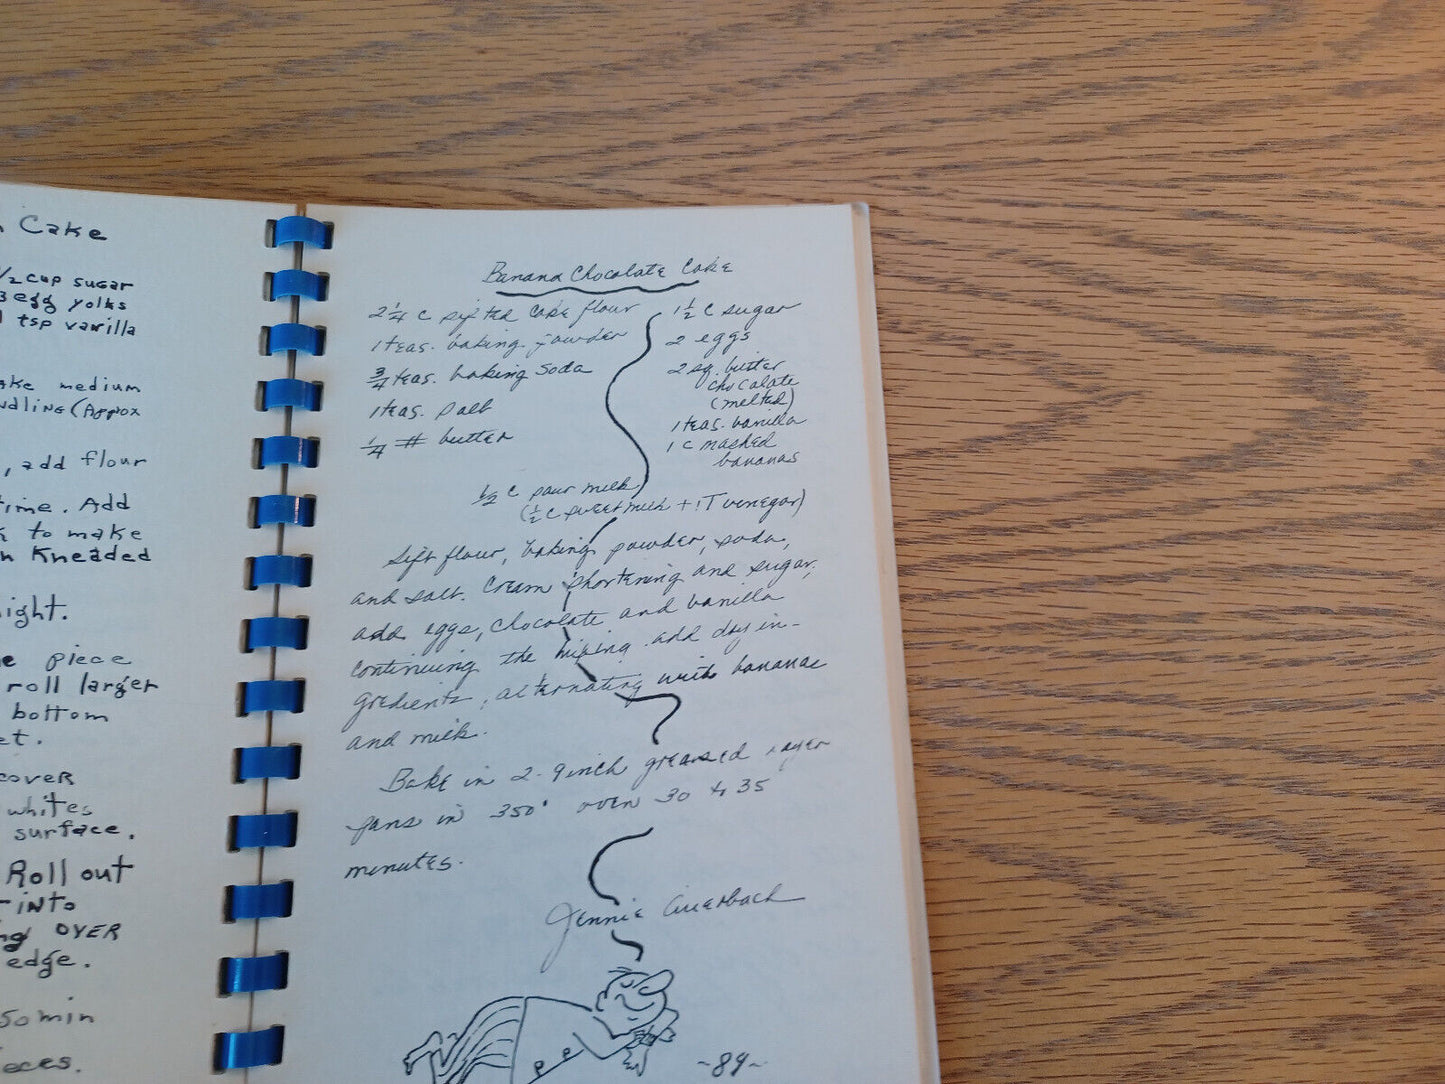 Cake
1/2 cup sugar
3 egg yolks
1 tsp vanilla
ake medium
ndling (Approx
, add flour
time. Add
k to make
n Kneaded
ight.
e piece
roll larger
bottom
et.
cover
whites
surface.
Roll out
into
ng over
edge.
50 min
eces.
Banana Chocolate Cake
2 1/4 c sifted cake flour
1 teas. baking powder
3/4 teas. baking soda
1 teas. salt
1/4 # butter
1 1/2 c sugar
2 eggs
2 sq. bitter
chocolate
(melted)
1 teas. vanilla
1 c mashed
bananas
1/2 c sour milk
(1/2 c sweet milk + 1T vinegar)
Sift flour, baking powder, soda,
and salt. Cream shortening and sugar,
add eggs, chocolate and vanilla
continuing the mixing. add dry in-
gredients, alternating with bananas
and milk.
Bake in 2-9 inch greased layer
pans in 350° oven 30 to 35
minutes.
Jennie Auerbach
~89~